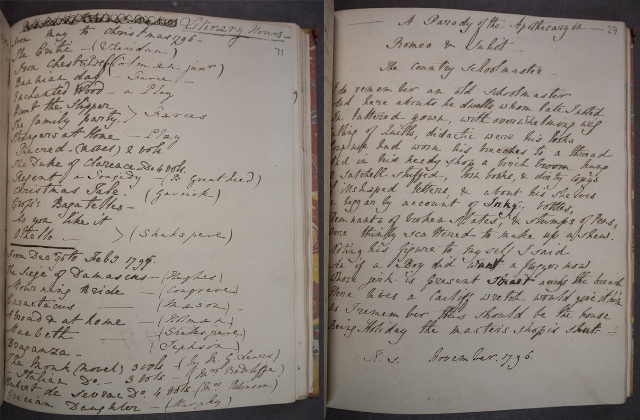 Literary Hours
71
From May to Christmas 1796
The Bride
Iron Chest (Colman junr)
Bannian day - Farce
Enchanted Wood - a Play
Hunt the Slipper
The family party } Farces
Play
2 vols.
The Duke of Clarence Do 4 vols.
Regent a Tragedy (B. Greatheed)
Christmas Tale (Garrick)
Bagatelles
As you like it
Othello } (Shakspeare)
From Dec 25th to Feb 3 1796
The Siege of Damascus - (Hughes)
Mourning Bride - (Congreve)
Caractacus - (Mason)
Abroad & at home - (Holman)
Macbeth - (Shakspeare)
Braganza - (Jephson)
The Monk (novel) 3 vols - (by M. G. Lewis)
Italian Do - 3 vols - (Mrs Radcliffe)
Hubert de Sevrac Do 4 vols. (Mrs Robinson)
Grecian Daughter - (Murphy)
29
A Parody of the Apothecary in
Romeo & Juliet
The Country Schoolmaster
I do remember an old Schoolmaster
And here abouts he dwells, whom late I noted
In tattered gown, with overwhelming wig
didactic were his looks
had worn his breeches to a thread
And in his needy shop a birch broom hung
A Satchell stuffed, torn books, & dirty copys
Of mishaped letters, & about his shelves
A beggarly account of Inky bottles,
Remnants of broken slates, & stumps of Pens,
Were thinly scattered to make up a shew.
Noting his figure to myself I said
And if a Boy did want a flogger now
Whose is present
Here lives a caitiff wretch would give it him
As I remember this should be the house
Being Holiday the master's shop is shut
November. 1796